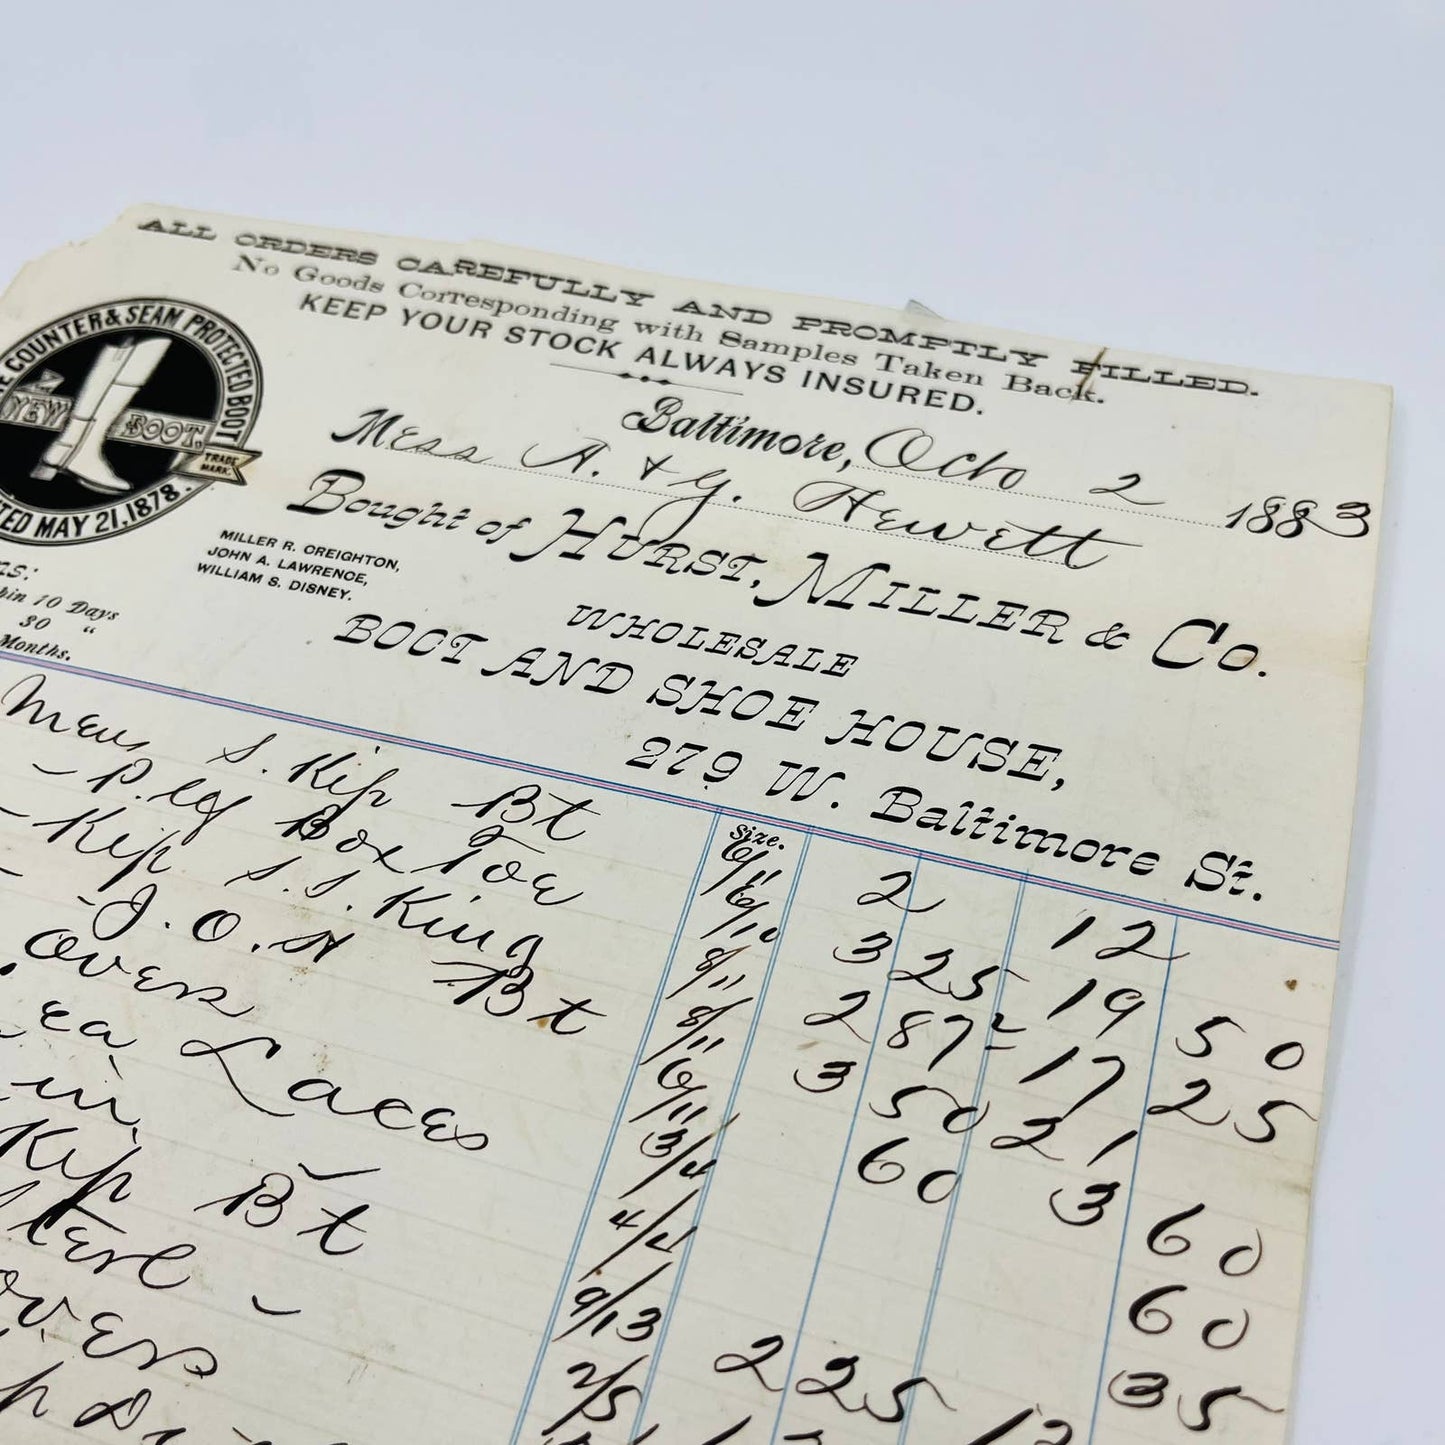 ALL ORDERS CAREFULLY AND PROMPTLY FILLED.
No Goods Corresponding with Samples Taken Back.
KEEP YOUR STOCK ALWAYS INSURED.
COUNTER & SEAM PROTECTED BOOT.
NEW BOOT.
TRADE MARK.
MAY 21, 1878.
Baltimore, Octo 2 1883
Mess A. & G. Hewett
Bought of HURST, MILLER & Co.
MILLER R. CREIGHTON,
JOHN A. LAWRENCE,
WILLIAM S. DISNEY.
WHOLESALE
BOOT AND SHOE HOUSE,
279 W. Baltimore St.
10 Days
30 "
Months.
Size.
Mens S. Kip Bt 6/11 2 12
- P. Box Toe 6/10 3 25 19 50
- Kip S. S. King 8/11 2 87 2 17 25
- J. O. H Bt 8/11 3 50 21
6/11 60 3 60
Laces 3/4 60
4/4 35
Kip Bt 9/13 2 25
2/5